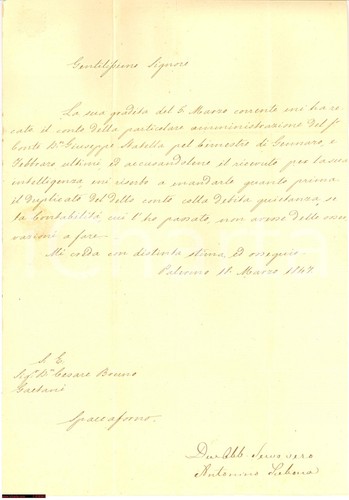 Gentilissimo Signore
La sua gradita del 6 Marzo corrente mi ha re=
cato il conto della particolare amministrazione del fu
Conte Dn Giuseppe Statella pel bimestre di Gennaro, e
Febbraro ultimi, ed accusandolene il ricevuto per la sua
intelligenza, mi riserbo a mandarle quanto prima
il duplicato del detto conto colla debita quietanza, se
la Contabilità, cui l'ho passato, non avesse delle osser
vazioni a fare.
Mi creda con distinta stima, ed ossequio.
Palermo 11 Marzo 1847
S. E.
Sig. Dn Cesare Bruno
Gaetani
Spaccaforno.
Dev Obb Servo vero
Antonino